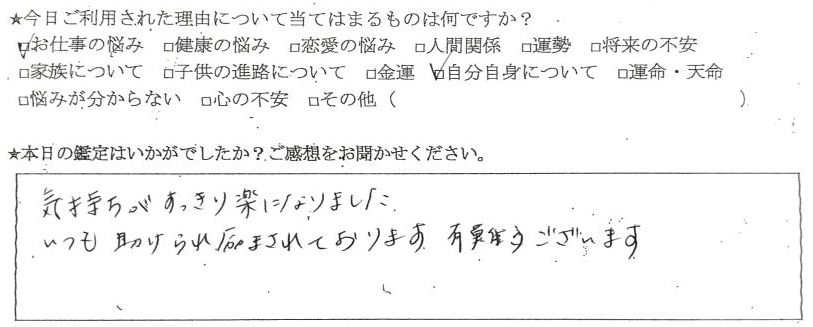 ★今日ご利用された理由について当てはまるものは何ですか？
☑お仕事の悩み □健康の悩み □恋愛の悩み □人間関係 □運勢 □将来の不安
□家族について □子供の進路について □金運 ☑自分自身について □運命・天命
□悩みが分からない □心の不安 □その他（ ）
★本日の鑑定はいかがでしたか？ご感想をお聞かせください。
気持ちがすっきり楽になりました
いつも助けられ励まされております 有難うございます